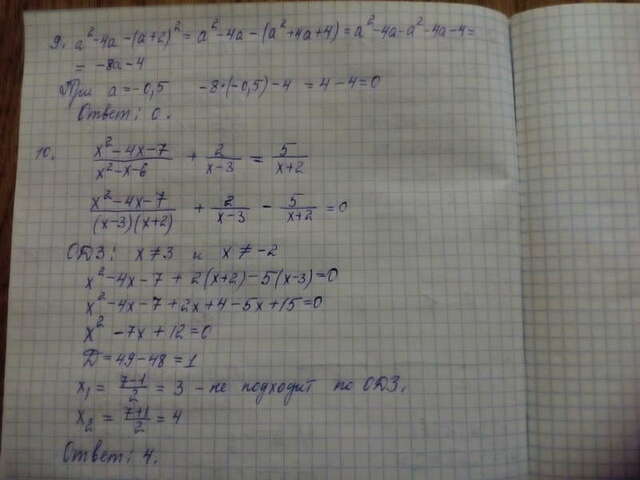 9. a²-4a-(a+2)² = a²-4a-(a²+4a+4) = a²-4a-a²-4a-4=
= -8a-4
При a=-0,5 -8·(-0,5)-4 = 4-4=0
Ответ: 0.
10. (x²-4x-7)/(x²-x-6) + 2/(x-3) = 5/(x+2)
(x²-4x-7)/((x-3)(x+2)) + 2/(x-3) - 5/(x+2) =0
ОДЗ: x≠3 и x≠-2
x²-4x-7+2(x+2)-5(x-3)=0
x²-4x-7+2x+4-5x+15=0
x²-7x+12=0
Д=49-48=1
x₁ = (7-1)/2 = 3 - не подходит по ОДЗ.
x₂ = (7+1)/2 = 4
Ответ: 4.